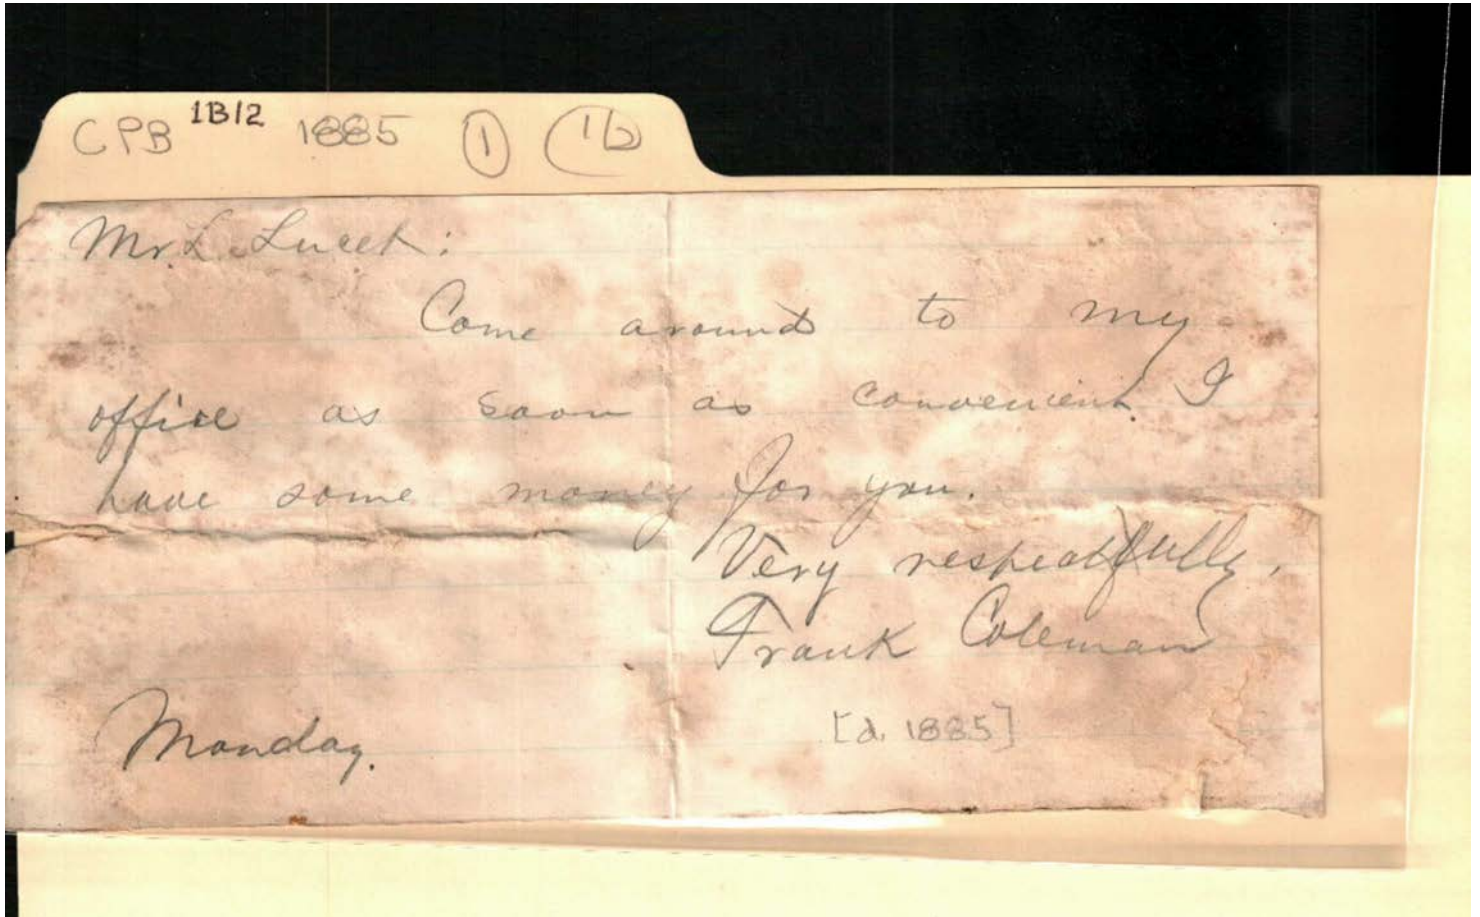 CPB 1B12 1885 1 1b
Mr. L. Lueck:
Come around to my
office as soon as convenient. I
have some money for you.
Very respectfully,
Frank Coleman
Monday.
[d. 1885]